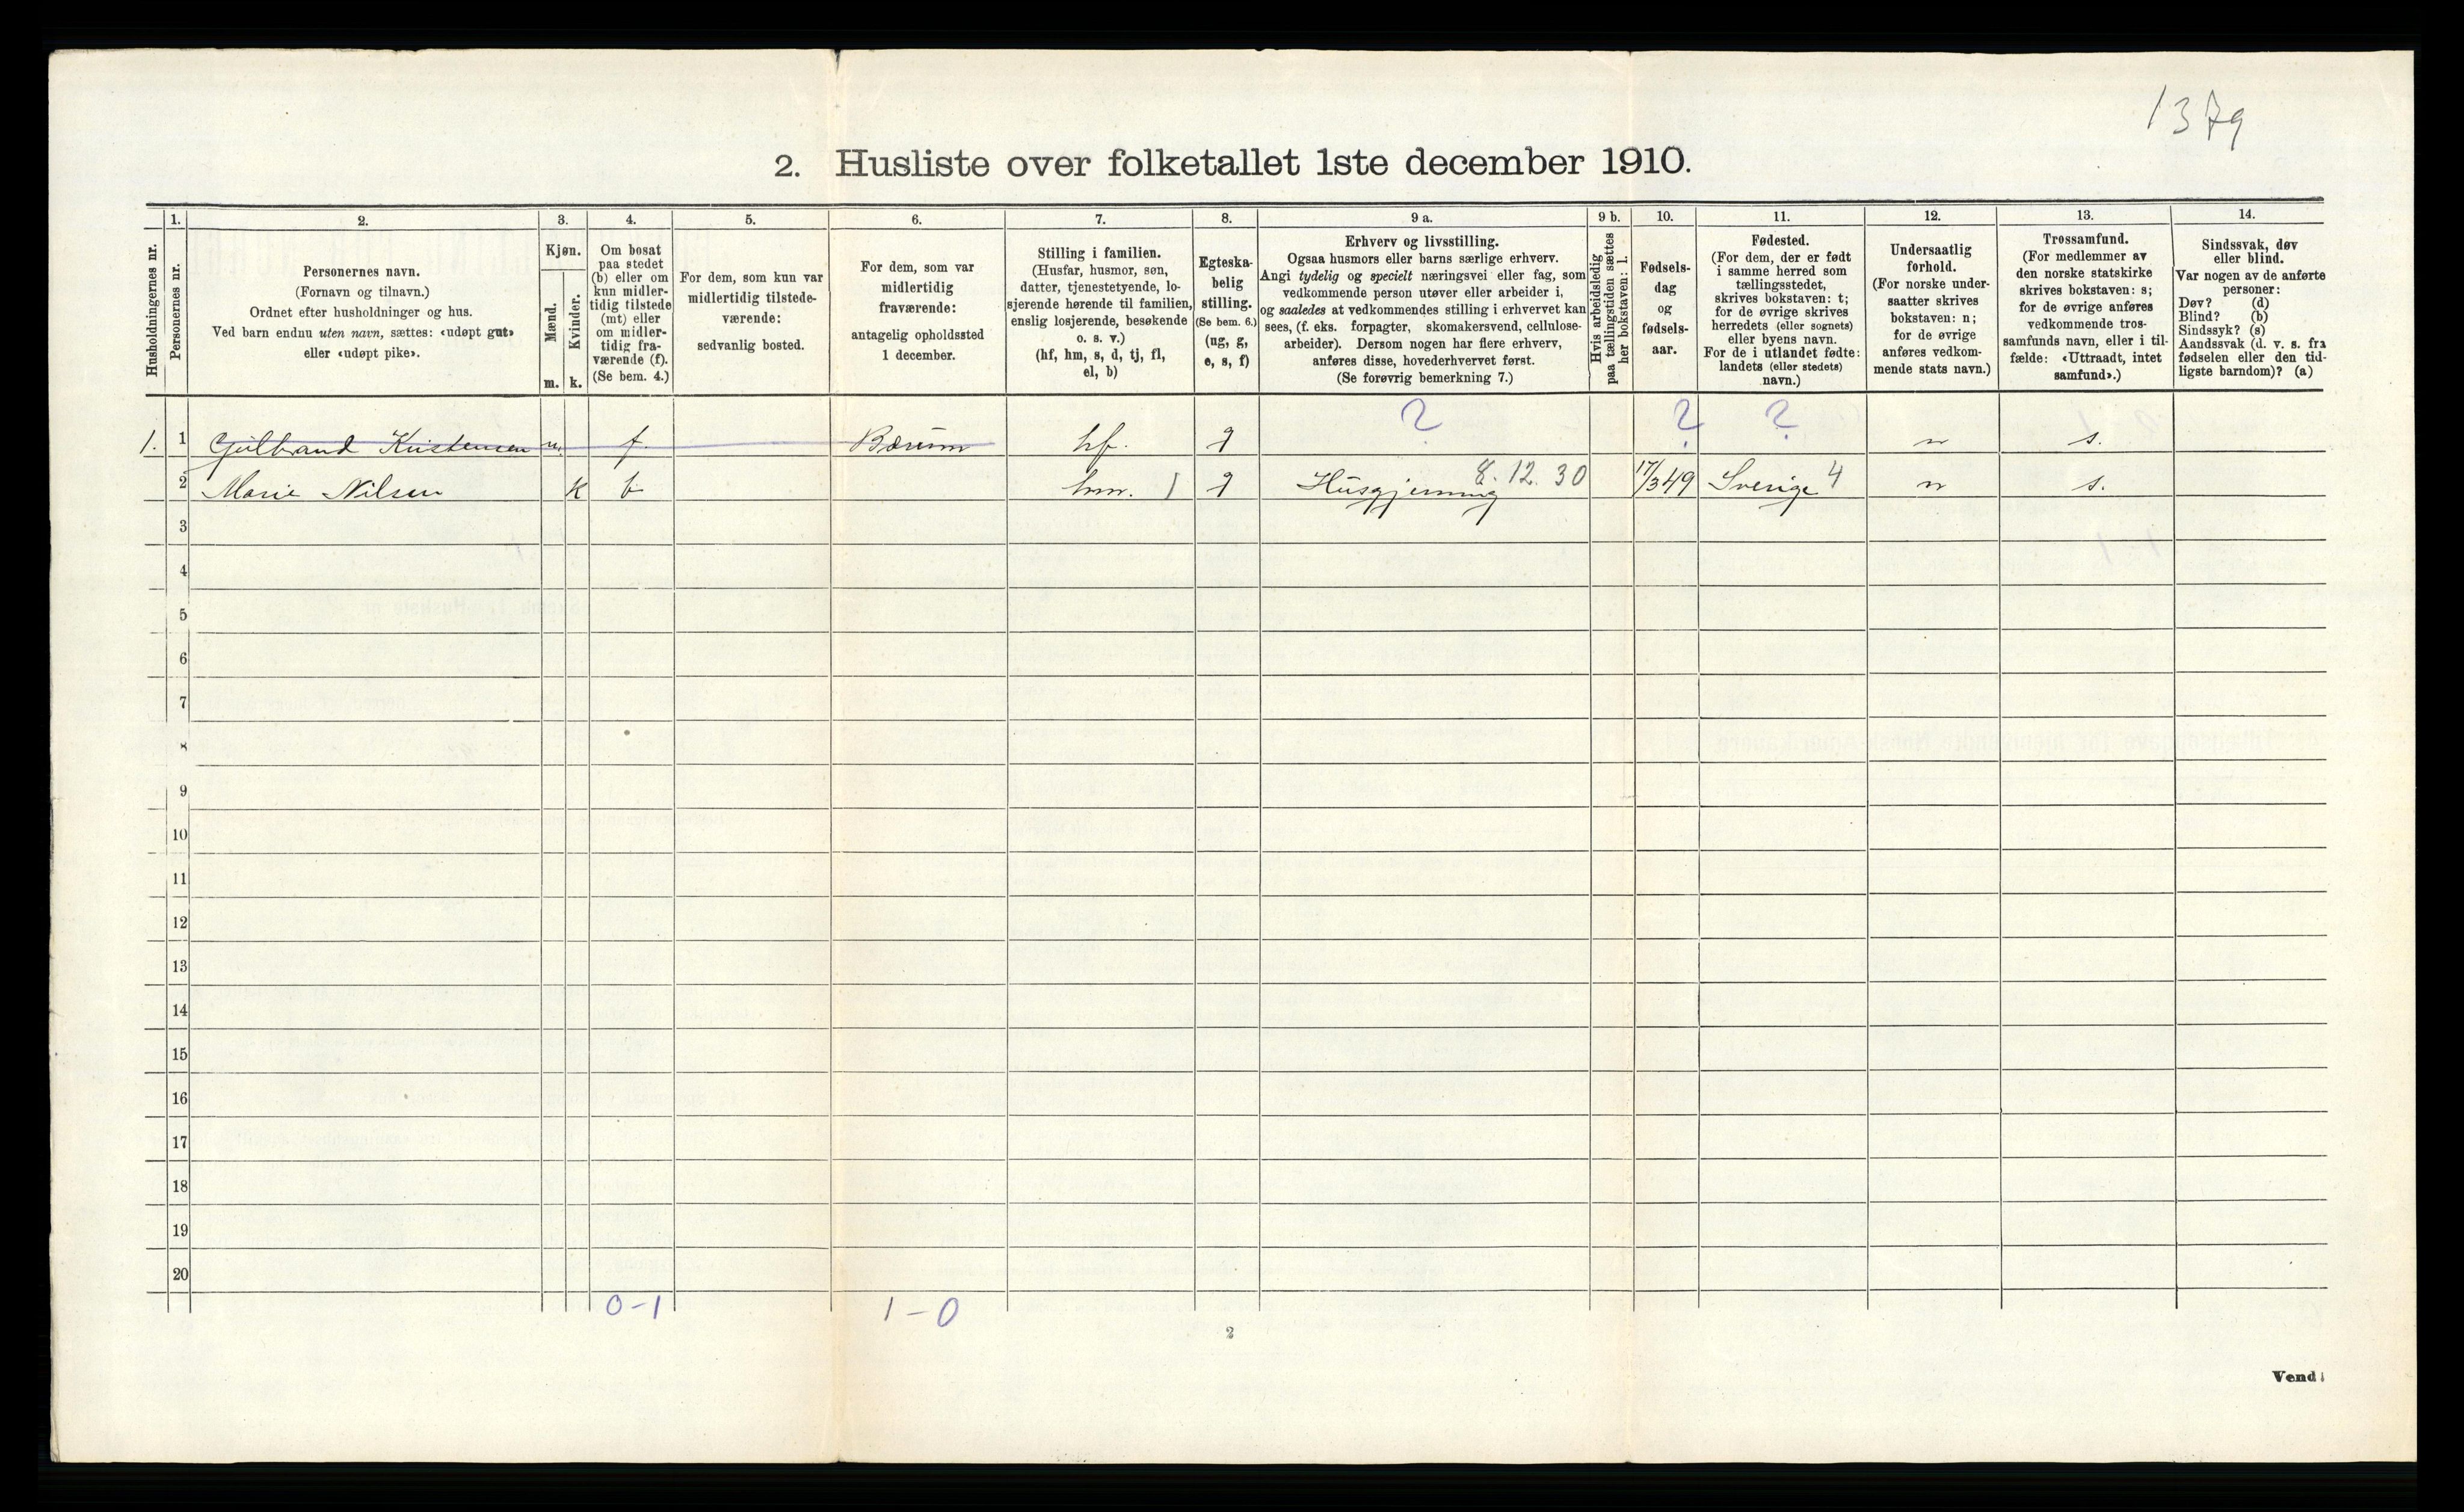 1379
2. Husliste over folketallet 1ste december 1910.
Husholdningernes nr.
1.
Personernes nr.
2.
Personernes navn.
(Fornavn og tilnavn.)
Ordnet efter husholdninger og hus.
Ved barn endnu uten navn, sættes: «udøpt gut»
eller «udøpt pike».
3.
Kjøn.
Mænd.
Kvinder.
m. k.
4.
Om bosat
paa stedet
(b) eller om
kun midler-
tidig tilstede
(mt) eller
om midler-
tidig fra-
værende (f).
(Se bem. 4.)
5.
For dem, som kun var
midlertidig tilstede-
værende:
sedvanlig bosted.
6.
For dem, som var
midlertidig
fraværende:
antagelig opholdssted
1 december.
7.
Stilling i familien.
(Husfar, husmor, søn,
datter, tjenestetyende, lo-
sjerende hørende til familien,
enslig losjerende, besøkende
o. s. v.)
(hf, hm, s, d, tj, fl,
el, b)
8.
Egteska-
belig
stilling.
(Se bem. 6.)
(ug, g,
e, s, f)
9 a.
Erhverv og livsstilling.
Ogsaa husmors eller barns særlige erhverv.
Angi tydelig og specielt næringsvei eller fag, som
vedkommende person utøver eller arbeider i,
og saaledes at vedkommendes stilling i erhvervet kan
sees, (f. eks. forpagter, skomakersvend, cellulose-
arbeider). Dersom nogen har flere erhverv,
anføres disse, hovederhvervet først.
(Se forøvrig bemerkning 7.)
9 b.
Hvis arbeidsledig
paa tællingstiden sættes
her bokstaven: l.
10.
Fødsels-
dag
og
fødsels-
aar.
11.
Fødested.
(For dem, der er født
i samme herred som
tællingsstedet,
skrives bokstaven: t;
for de øvrige skrives
herredets (eller sognets)
eller byens navn.
For de i utlandet fødte:
landets (eller stedets)
navn.)
12.
Undersaatlig
forhold.
(For norske under-
saatter skrives
bokstaven: n;
for de øvrige
anføres vedkom-
mende stats navn.)
13.
Trossamfund.
(For medlemmer av
den norske statskirke
skrives bokstaven: s;
for de øvrige anføres
vedkommende tros-
samfunds navn, eller i til-
fælde: «Uttraadt, intet
samfund».)
14.
Sindssvak, døv
eller blind.
Var nogen av de anførte
personer:
Døv? (d)
Blind? (b)
Sindssyk? (s)
Aandssvak (d. v. s. fra
fødselen eller den tid-
ligste barndom)? (a)
1. 1 Gulbrand Kristensen m. f Bærum hf. g ? ? ? n s.
2 Marie Nilsen k b hm. 1 g Husgjerning 8.12.30 17/3 49 Sverige 4 n s.
3
4
5
6
7
8
9
10
11
12
13
14
15
16
17
18
19
20
0-1 1-0
2
Vend!